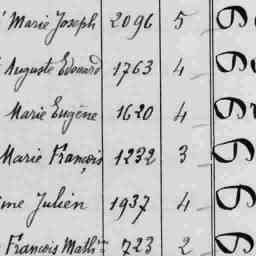 Marie Joseph 2096 5
Auguste Edouard 1763 4
Marie Eugène 1620 4
Marie François 1232 3
Julien 1937 4
François Math 723 2